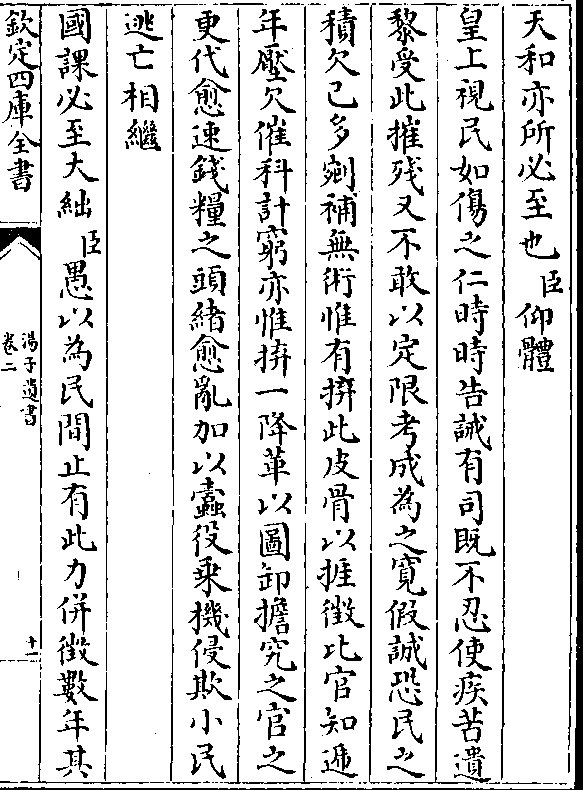 天和亦所必至也臣仰體
皇上視民如傷之仁時時告誡有司既不忍使疾苦遺
黎受此摧残又不敢以定限考成為之寛假誠恐民之
積欠已多剜補無術惟有拚此皮骨以捱徴比官知遞
年壓欠催科計窮亦惟拚一降革以圖卸擔究之官之
更代愈速錢糧之頭緒愈亂加以蠧役乗機侵欺小民
逃亡相繼
國課必至大絀臣愚以為民間止有此力併徴數年其
欽定四庫全書
湯子遺書
卷二
十一